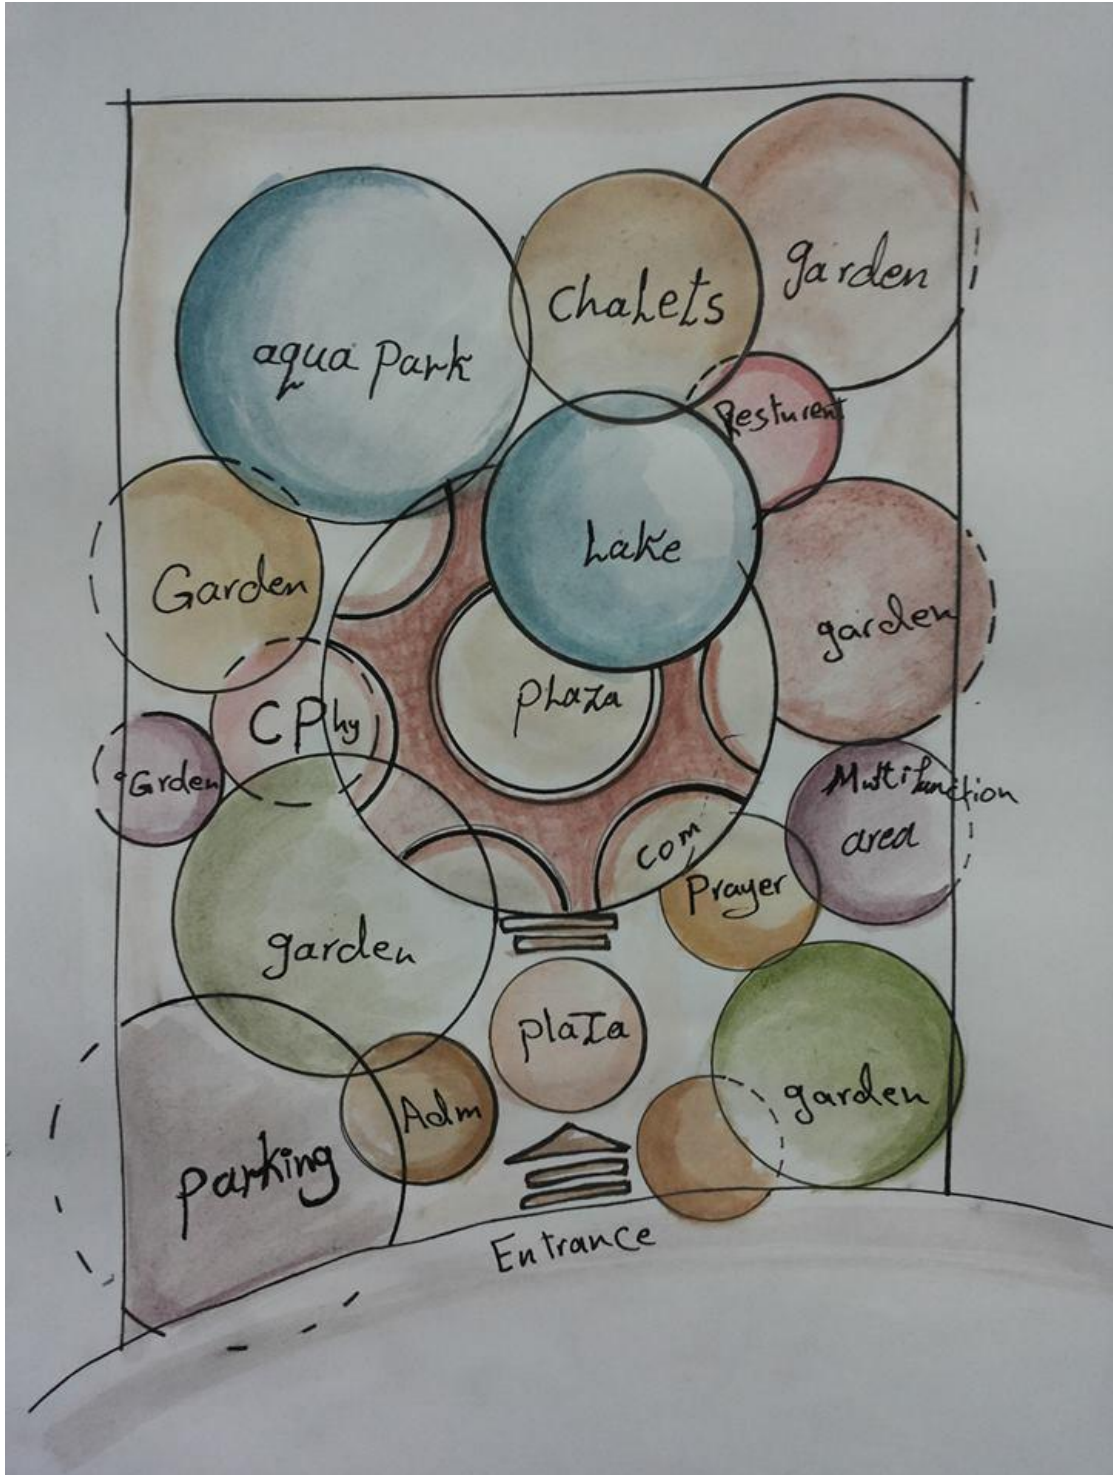 garden
chaLets
aqua Park
Resturent
Lake
Garden
garden
pLaza
CPhy
Grden
Multifunction
area
com
Prayer
garden
plaza
garden
Adm
parking
Entrance